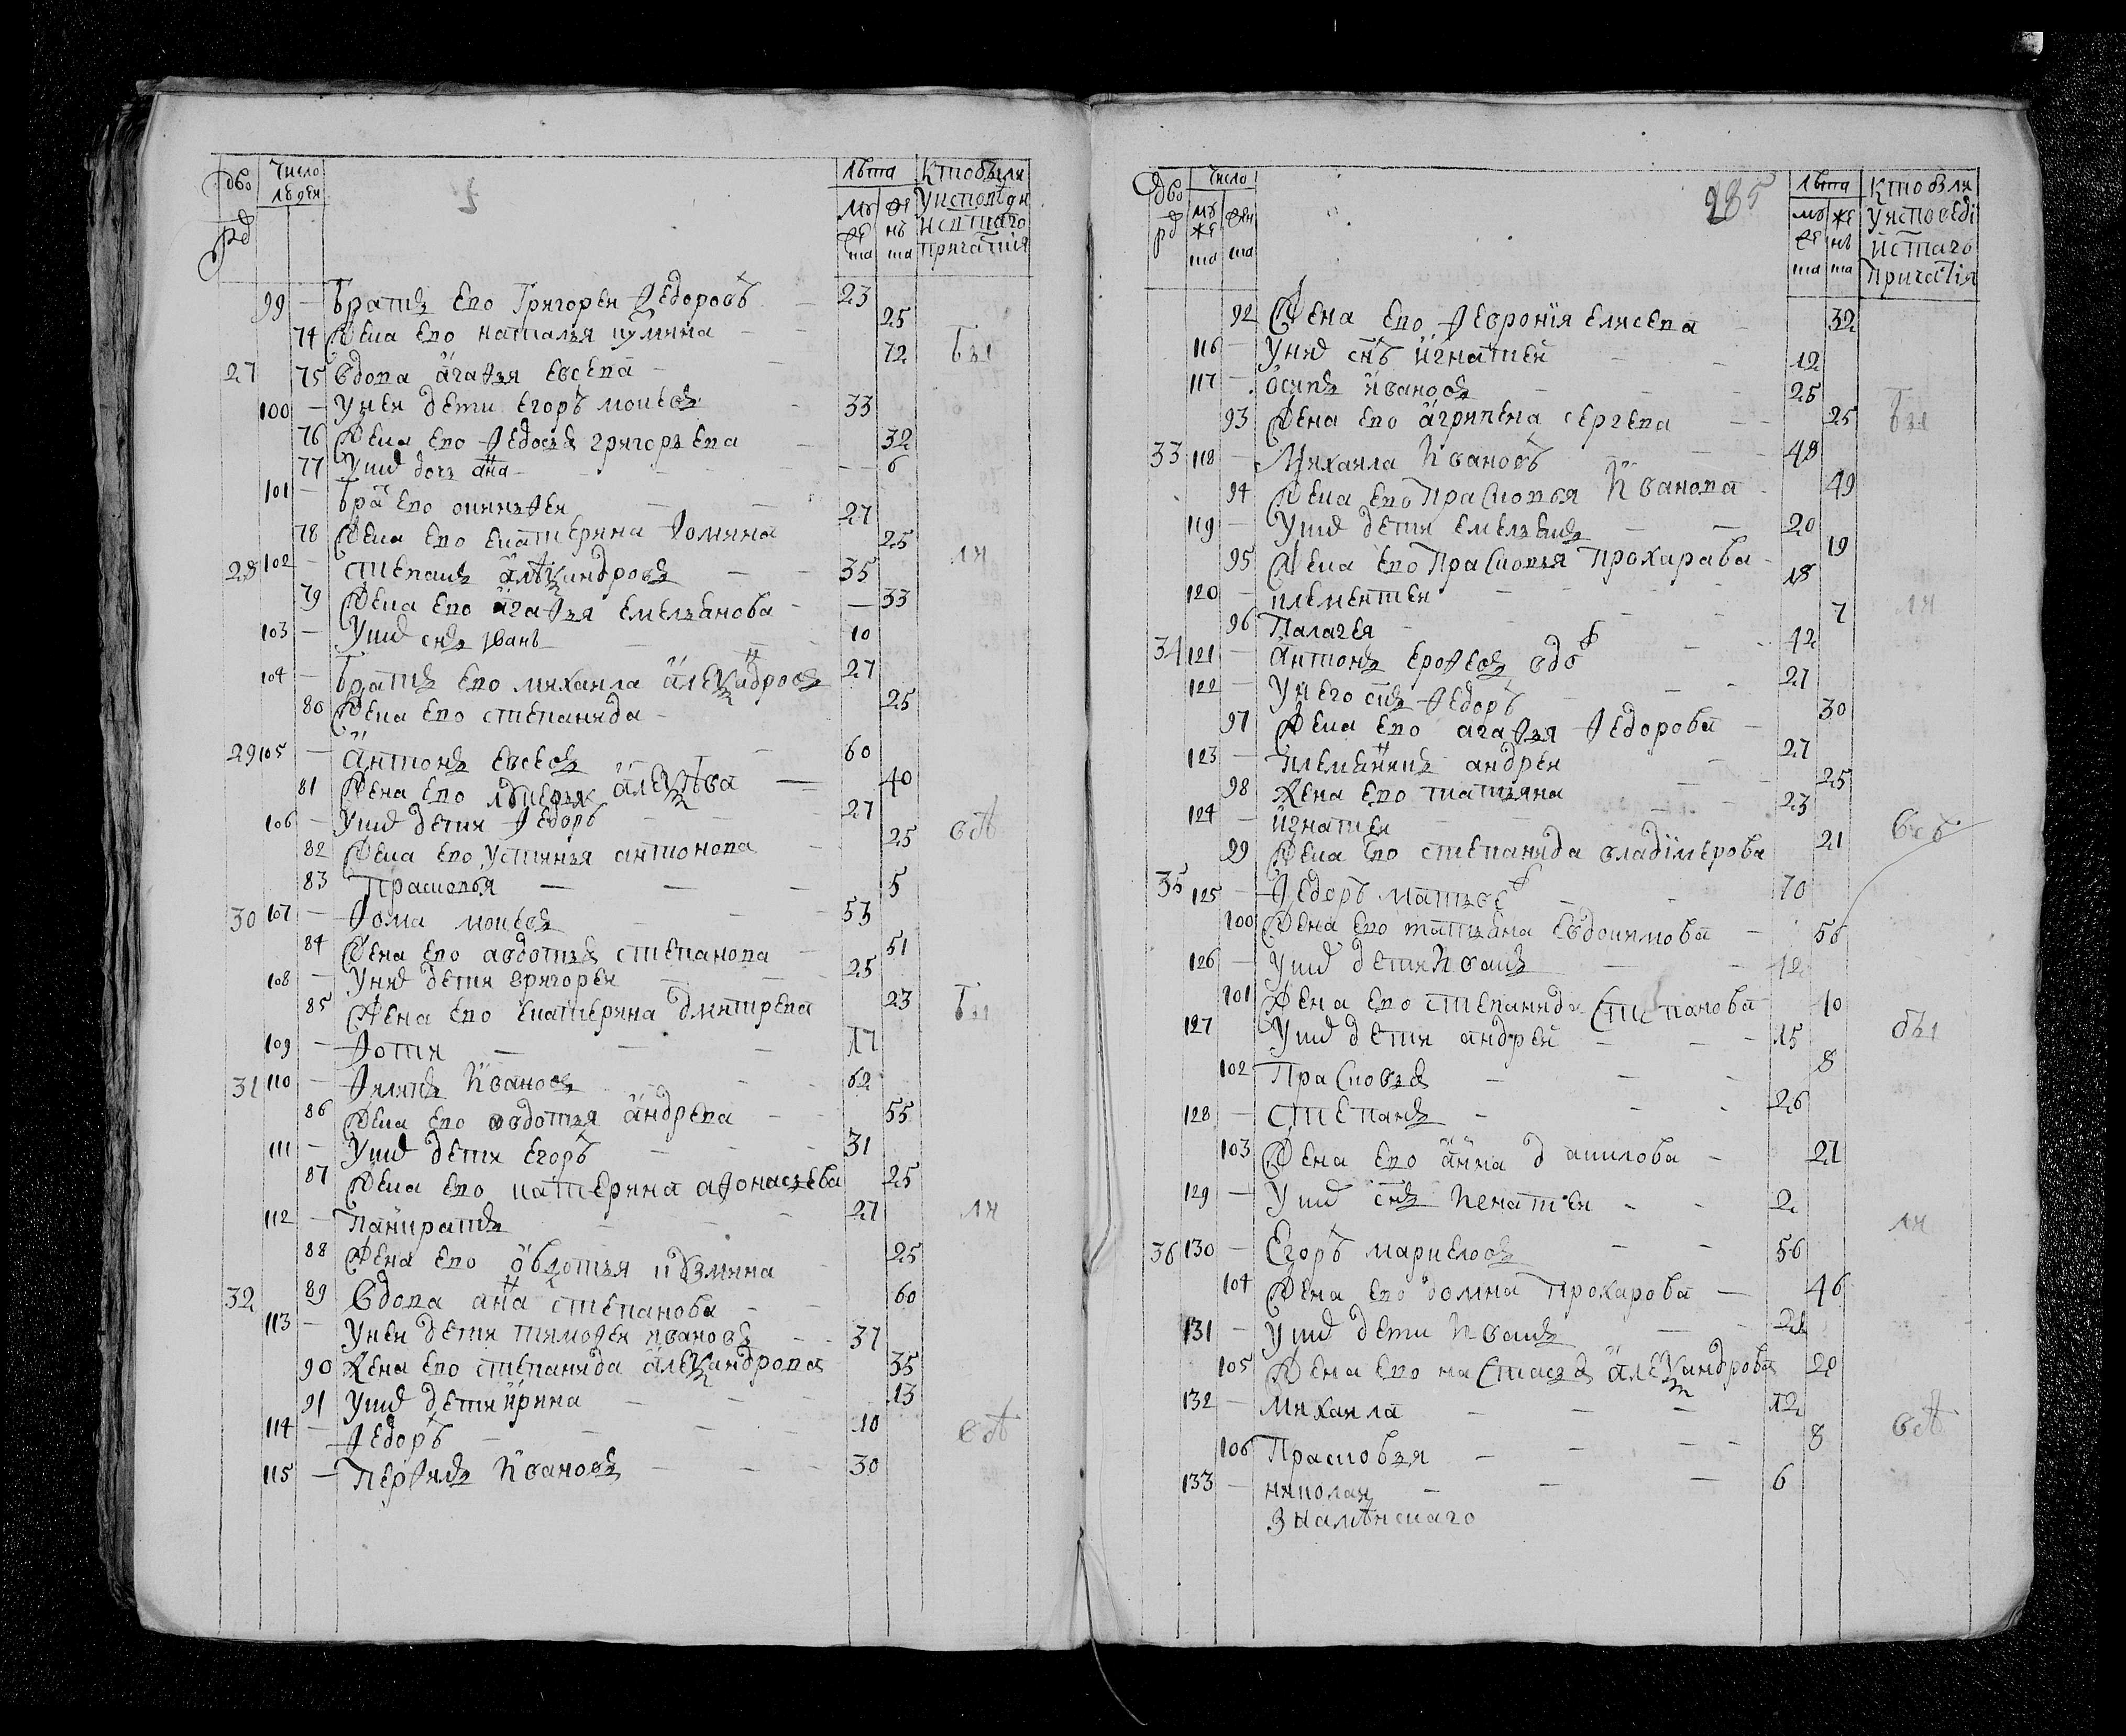 дво
рд
Число
людей
лѣта
му
же
ска
же
нь
ска
Кто были
у исповѣди
и с\таго
причастия
99 — Братъ его Григореи Федоровъ — 23
74 Жена его наталья кузмина — — 25
27 75 Вдова агафья Евсева — 72 бы
100 — У неи дети егоръ моисеѡ — 33
76 Жена его Федосья григорьева — 32
77 У ни дочь анна — — 6
101 — Бра его
78 Жена его екатерина Фомина 25
28 102 — степанъ алеѯандровъ — — 35 ли
79 Жена его агафья емельянова — — 33
103 — У ни снъ Иванъ — 10
104 — Братъ его михаила алеѯандровъ 27
80 Жена его степанида — 25
29 105 — Антонъ евсеевъ — 60
81 Жена его алеѯѣва — 40
106 — У ни дети Федоръ — — 27
82 Жена его устинья антонова — 25
83 Прасковья — — — 5
30 107 — Фома моисеевъ — — 53
84 Жена его авдотья степанова — 51
108 — У ни дети григореи — — 25
85 Жена его екатерина дмитрева 23 бы
109 — Фоти — — — 17
31 110 — Филипъ Ивановъ — — 62
86 Жена его авдотья андрева — — 55
111 — У ни дети егоръ — — — 31
87 Жена его катерина афонасьева 25
112 — Панкратъ — — — 27 ли
88 Жена его овдотья кузмина 25
32 89 Вдова анна степанова — — 60
113 — У неи дети тимофеи ивановъ — — 37
90 Жена его степанида алеѯандрова 35
91 У ни дети ирина — — — 13
114 — Федоръ — — — — 10
115 — Перфилъ Ивановъ — — — 30
дво
рд
число
му
же
ска
жен
ска
285
лѣта
му
же
ска
же
нь
ска
Кто были
у исповеди
и с\таго
причастія
92 Жена его Февронія елисева — 32
116 — У ни снъ игнатеи — — 12
117 — осипъ ивановъ — — — 25
93 Жена его агрипена сергева — — 25 бы
33 118 — Михаила Ивановъ — — 48
94 Жена его Прасковья Иванова — 49
119 — У ни дети емельянъ — — 20
95 Жена его Прасковья Прохарава — 19
120 — клементеи — — — 18
96 Палагея — — — 7 ли
34 121 — Антонъ ерофеевъ вдовъ — — 42
122 — У него снъ Федоръ — — — 27
97 Жена его агафья Федорова — 30
123 — племянникъ андреи — 27
98 Жена его татьяна — — 25
124 — игнатеи — — — — 23
99 Жена его степанида владімерова 21
35 125 — Федоръ матвѣевъ — — 70
100 Жена его татьяна Евдокимова — 56
126 — У ни дети Иванъ — — 12
101 Жена его степанида степанова 10
127 У ни дети андреи — — — 15 бы
102 Прасковья — — — 8
128 — степанъ — — — 26
103 Жена его анна данилова — 21
129 — У ни снъ Игнатеи — — 2
36 130 — Егоръ — — 56 ли
104 Жена его домна Прохарова — 46
131 — У ни дети Иванъ — —
105 Жена его настасья алеѯандрова 20
132 — михаила — — — 12
106 Прасковья — — — — 8
133 — николаи — — — 6
Знаменскаго